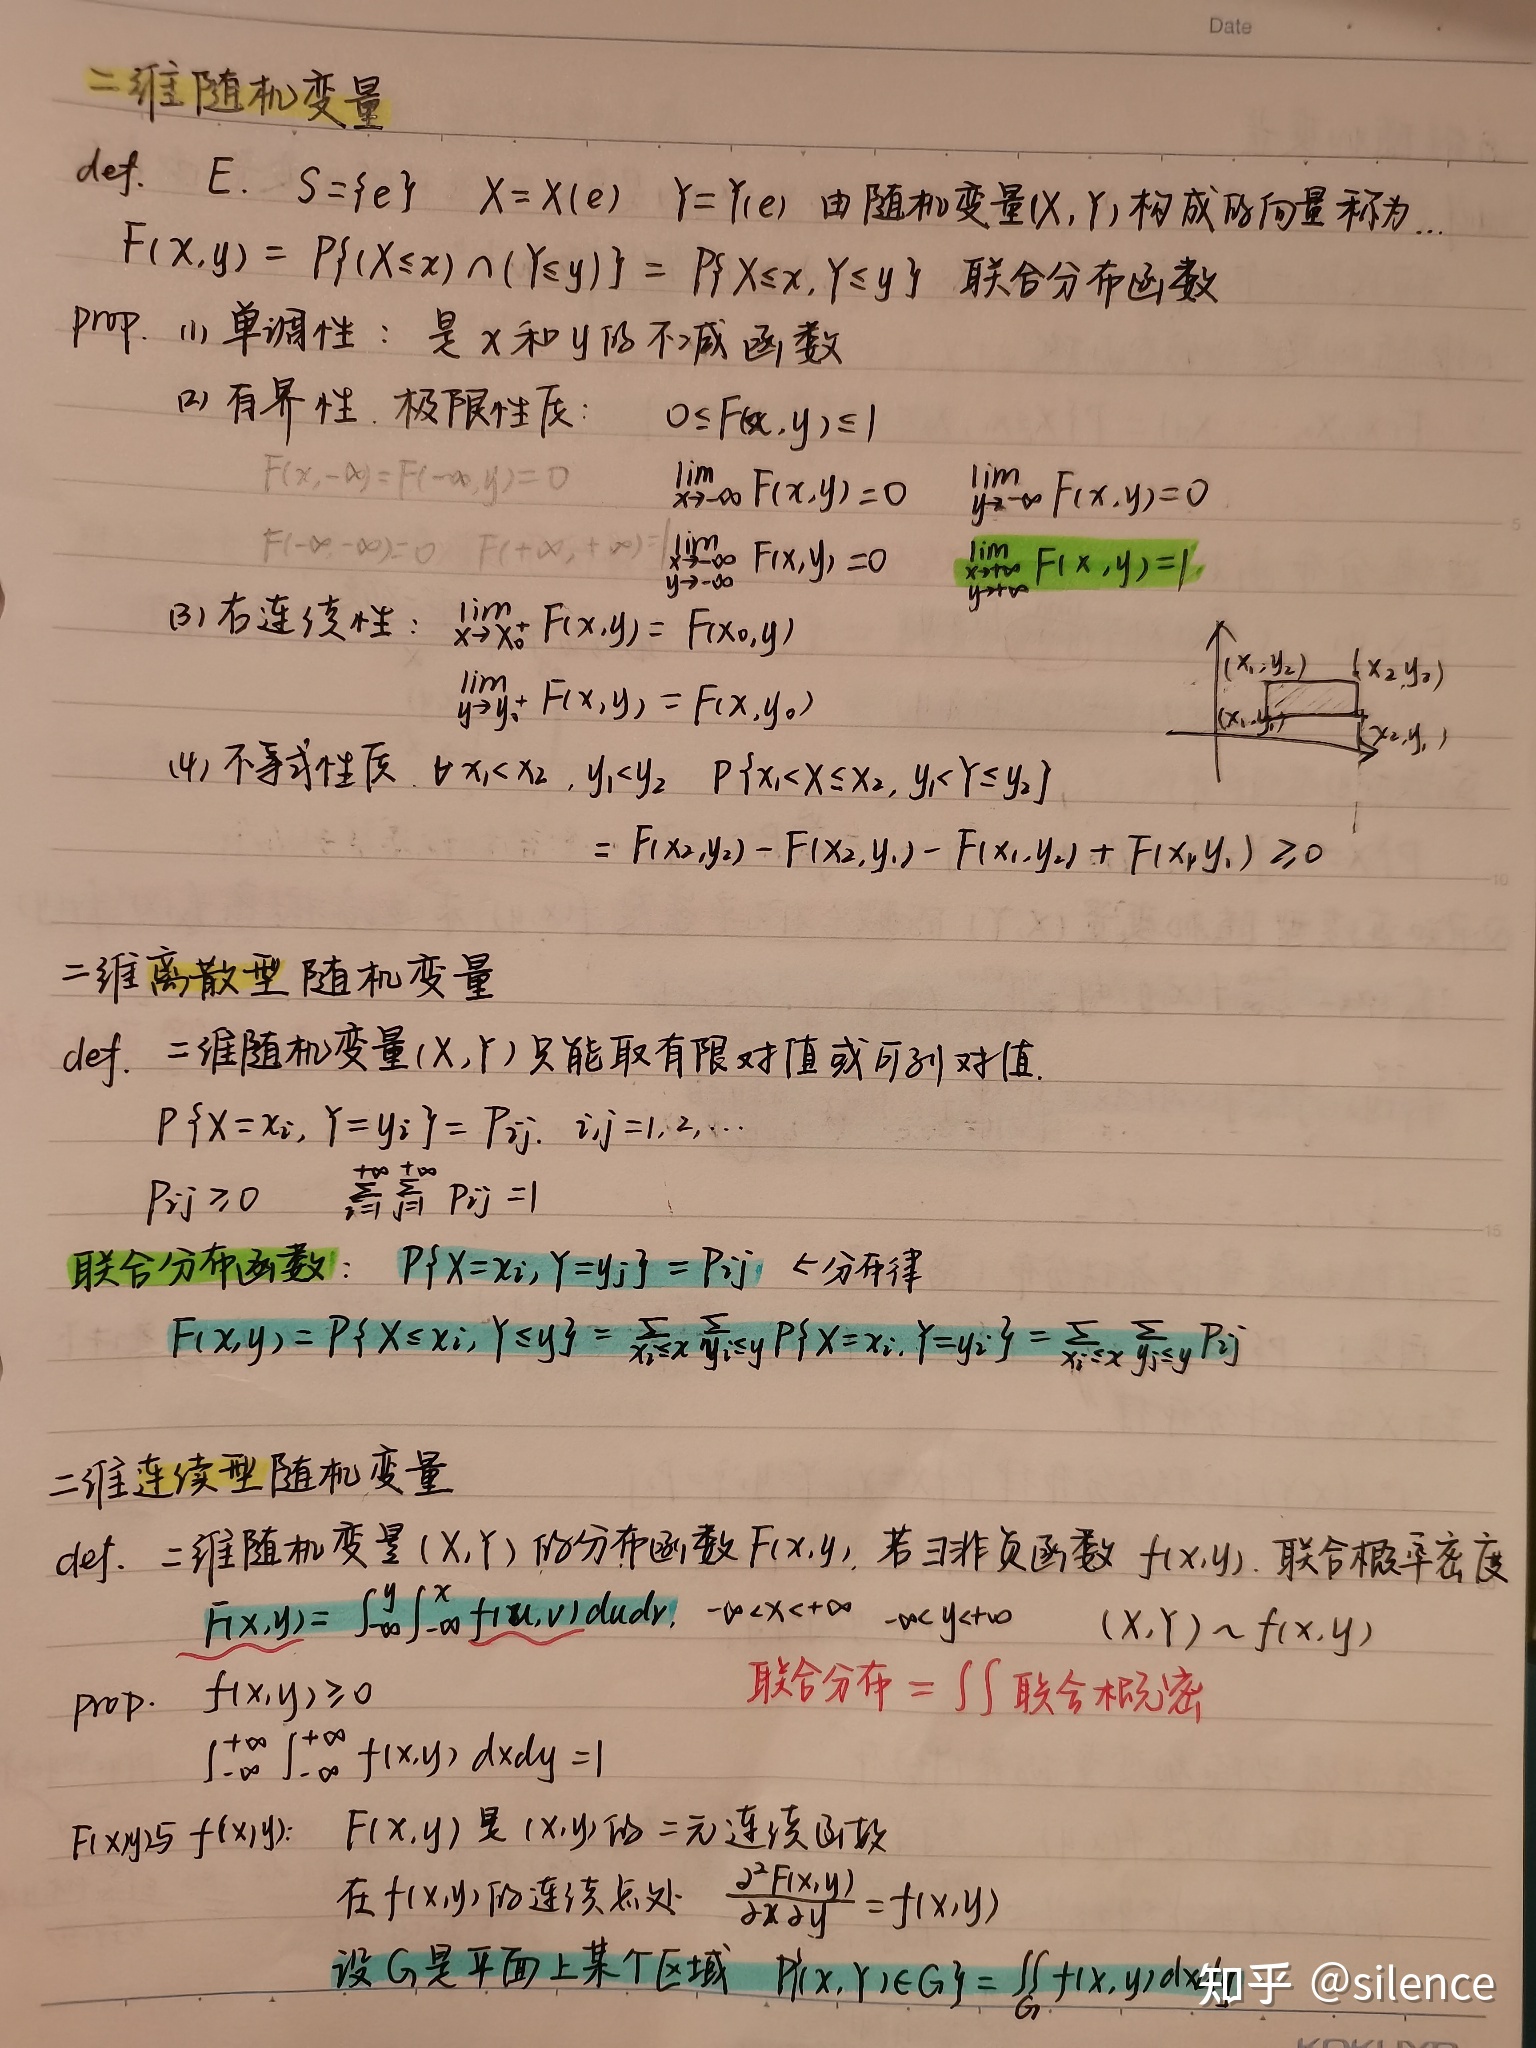 Date
二维随机变量
def. E. S={e} X=X(e) Y=Y(e) 由随机变量(X,Y)构成的向量称为...
F(x,y) = P{(X≤x)∩(Y≤y)} = P{X≤x, Y≤y} 联合分布函数
prop. (1) 单调性: 是x和y的不减函数
(2) 有界性. 极限性质: 0≤F(x,y)≤1
F(x,-∞)=F(-∞,y)=0 lim x→-∞ F(x,y)=0 lim y→-∞ F(x,y)=0
F(-∞,-∞)=0 F(+∞,+∞)=1 lim x→-∞ y→-∞ F(x,y)=0 lim x→+∞ y→+∞ F(x,y)=1
(3) 右连续性: lim x→x₀⁺ F(x,y)= F(x₀,y)
lim y→y₀⁺ F(x,y) = F(x,y₀)
(x₁,y₂) (x₂,y₂)
(x₁,y₁) (x₂,y₁)
(4) 不等式性质. ∀x₁<x₂, y₁<y₂ P{x₁<X≤x₂, y₁<Y≤y₂}
= F(x₂,y₂) - F(x₂,y₁) - F(x₁,y₂) + F(x₁,y₁) ≥0
二维离散型随机变量
def. 二维随机变量(X,Y)只能取有限对值或可列对值.
P{X=xᵢ, Y=yᵢ} = Pᵢⱼ. i,j=1,2,...
Pᵢⱼ≥0 +∞∑i=1 +∞∑j=1 Pᵢⱼ=1
联合分布函数: P{X=xᵢ, Y=yⱼ} = Pᵢⱼ ←分布律
F(x,y) = P{X≤xᵢ, Y≤y} = ∑xᵢ≤x ∑yᵢ≤y P{X=xᵢ, Y=yᵢ} = ∑xᵢ≤x ∑yⱼ≤y Pᵢⱼ
二维连续型随机变量
def. 二维随机变量(X,Y)的分布函数F(x,y), 若∃非负函数 f(x,y). 联合概率密度
F(x,y) = ∫_{-∞}^{y}∫_{-∞}^{x} f(u,v)dudv, -∞<x<+∞ -∞<y<+∞ (X,Y)~f(x,y)
prop. f(x,y)≥0 联合分布 = ∫∫ 联合概密
∫_{-∞}^{+∞} ∫_{-∞}^{+∞} f(x,y) dxdy =1
F(x,y)与f(x,y): F(x,y)是(x,y)的二元连续函数
在f(x,y)的连续点处 ∂²F(x,y)/∂x∂y = f(x,y)
设G是平面上某个区域 P{(X,Y)∈G} = ∬_G f(x,y)dxdy
知乎 @silence
5
10
15